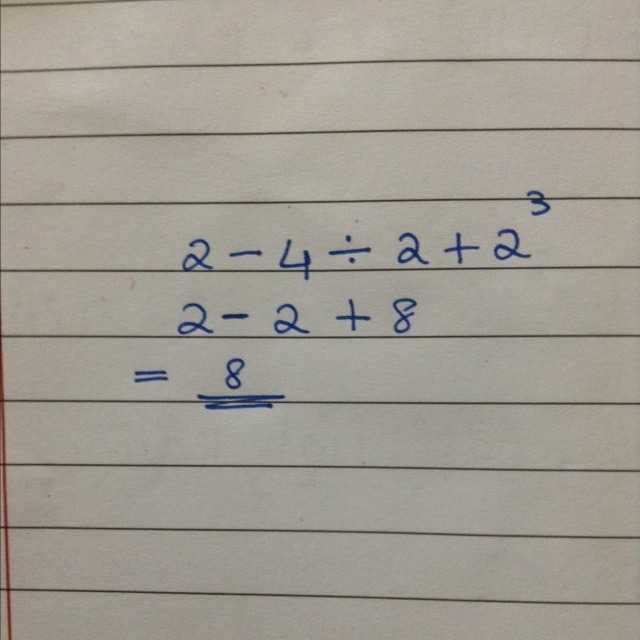 2 - 4 ÷ 2 + 2³
2 - 2 + 8
= 8